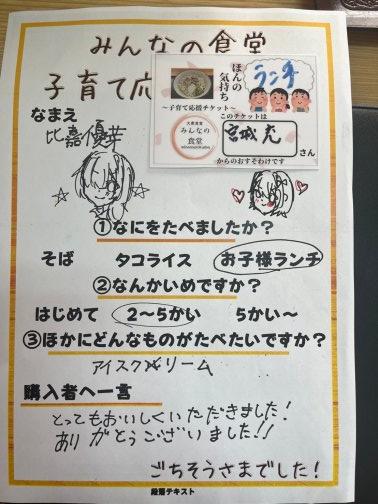 みんなの食堂
子育て応
ほんの気持ち
ランチ
～子育て応援チケット～
このチケットは
みんなの
食堂
宮城 充
さん
からのおすそわけです
なまえ
比嘉優芽
①なにをたべましたか？
そば タコライス お子様ランチ
②なんかいめですか？
はじめて 2～5かい 5かい～
③ほかにどんなものがたべたいですか？
アイスクリーム
購入者へ一言
とってもおいしくいただきました！
ありがとうございました!!
ごちそうさまでした！
段落テキスト